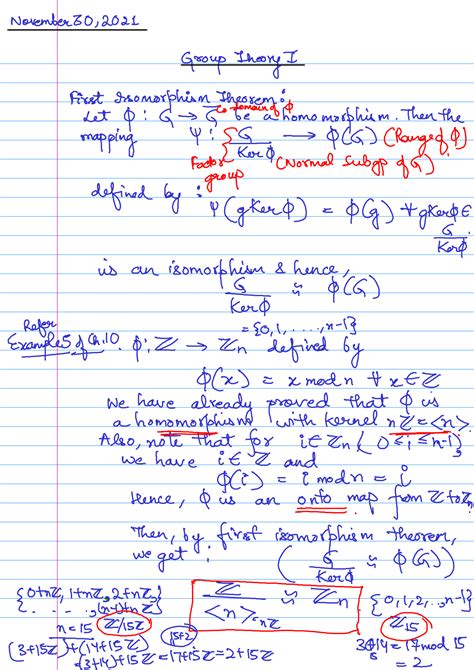 November 30, 2021
Group Theory I
First Isomorphism Theorem:
Co-domain of ϕ
Let ϕ: G → G̅ be a homomorphism. Then the
mapping Ψ: G/Kerϕ → ϕ(G) (Range of ϕ)
Factor group (Normal Subgp of G)
defined by:
Ψ(gKerϕ) = ϕ(g) ∀ gKerϕ ∈ G/Kerϕ
is an isomorphism & hence,
G/Kerϕ ≈ ϕ(G)
= {0, 1, ..., n-1}
Refer
Example 5 of Ch.10. ϕ: ℤ → ℤn defined by
ϕ(x) = x mod n ∀ x ∈ ℤ
We have already proved that ϕ is
a homomorphism with kernel nℤ = <n>.
Also, note that for i ∈ ℤn (0 ≤ i ≤ n-1),
we have i ∈ ℤ and
ϕ(i) = i mod n = i
Hence, ϕ is an onto map from ℤ to ℤn
Then, by first isomorphism theorem,
we get: (G/Kerϕ ≈ ϕ(G))
{0+nℤ, 1+nℤ, 2+nℤ,
. . . ., (n-1)+nℤ}
ℤ/<n> = nℤ ≈ ℤn {0, 1, 2, .., n-1}
n = 15 ℤ/15ℤ 15+2 ℤ15
(3+15ℤ) + (14+15ℤ) 3+14 = 17 mod 15
= (3+14)+15ℤ = 17+15ℤ = 2+15ℤ = 2